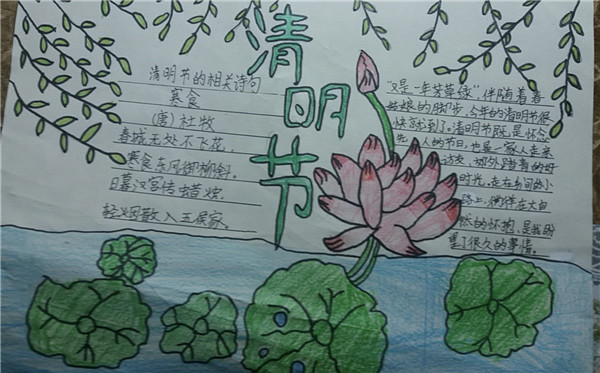 清明节
清明节的相关诗句
寒食
(唐)杜牧
春城无处不飞花,
寒食东风御柳斜。
日暮汉宫传蜡烛,
轻烟散入五侯家。
"又是一年芳草绿",伴随着春
姑娘的脚步,今年的清明节很
快就到了。清明节既是怀念
先人的节日,也是一家人走亲
访友,郊外踏青的好
时光,走在乡间的小
路上,徜徉在大自
然的怀抱,是我盼
望了很久的事情。